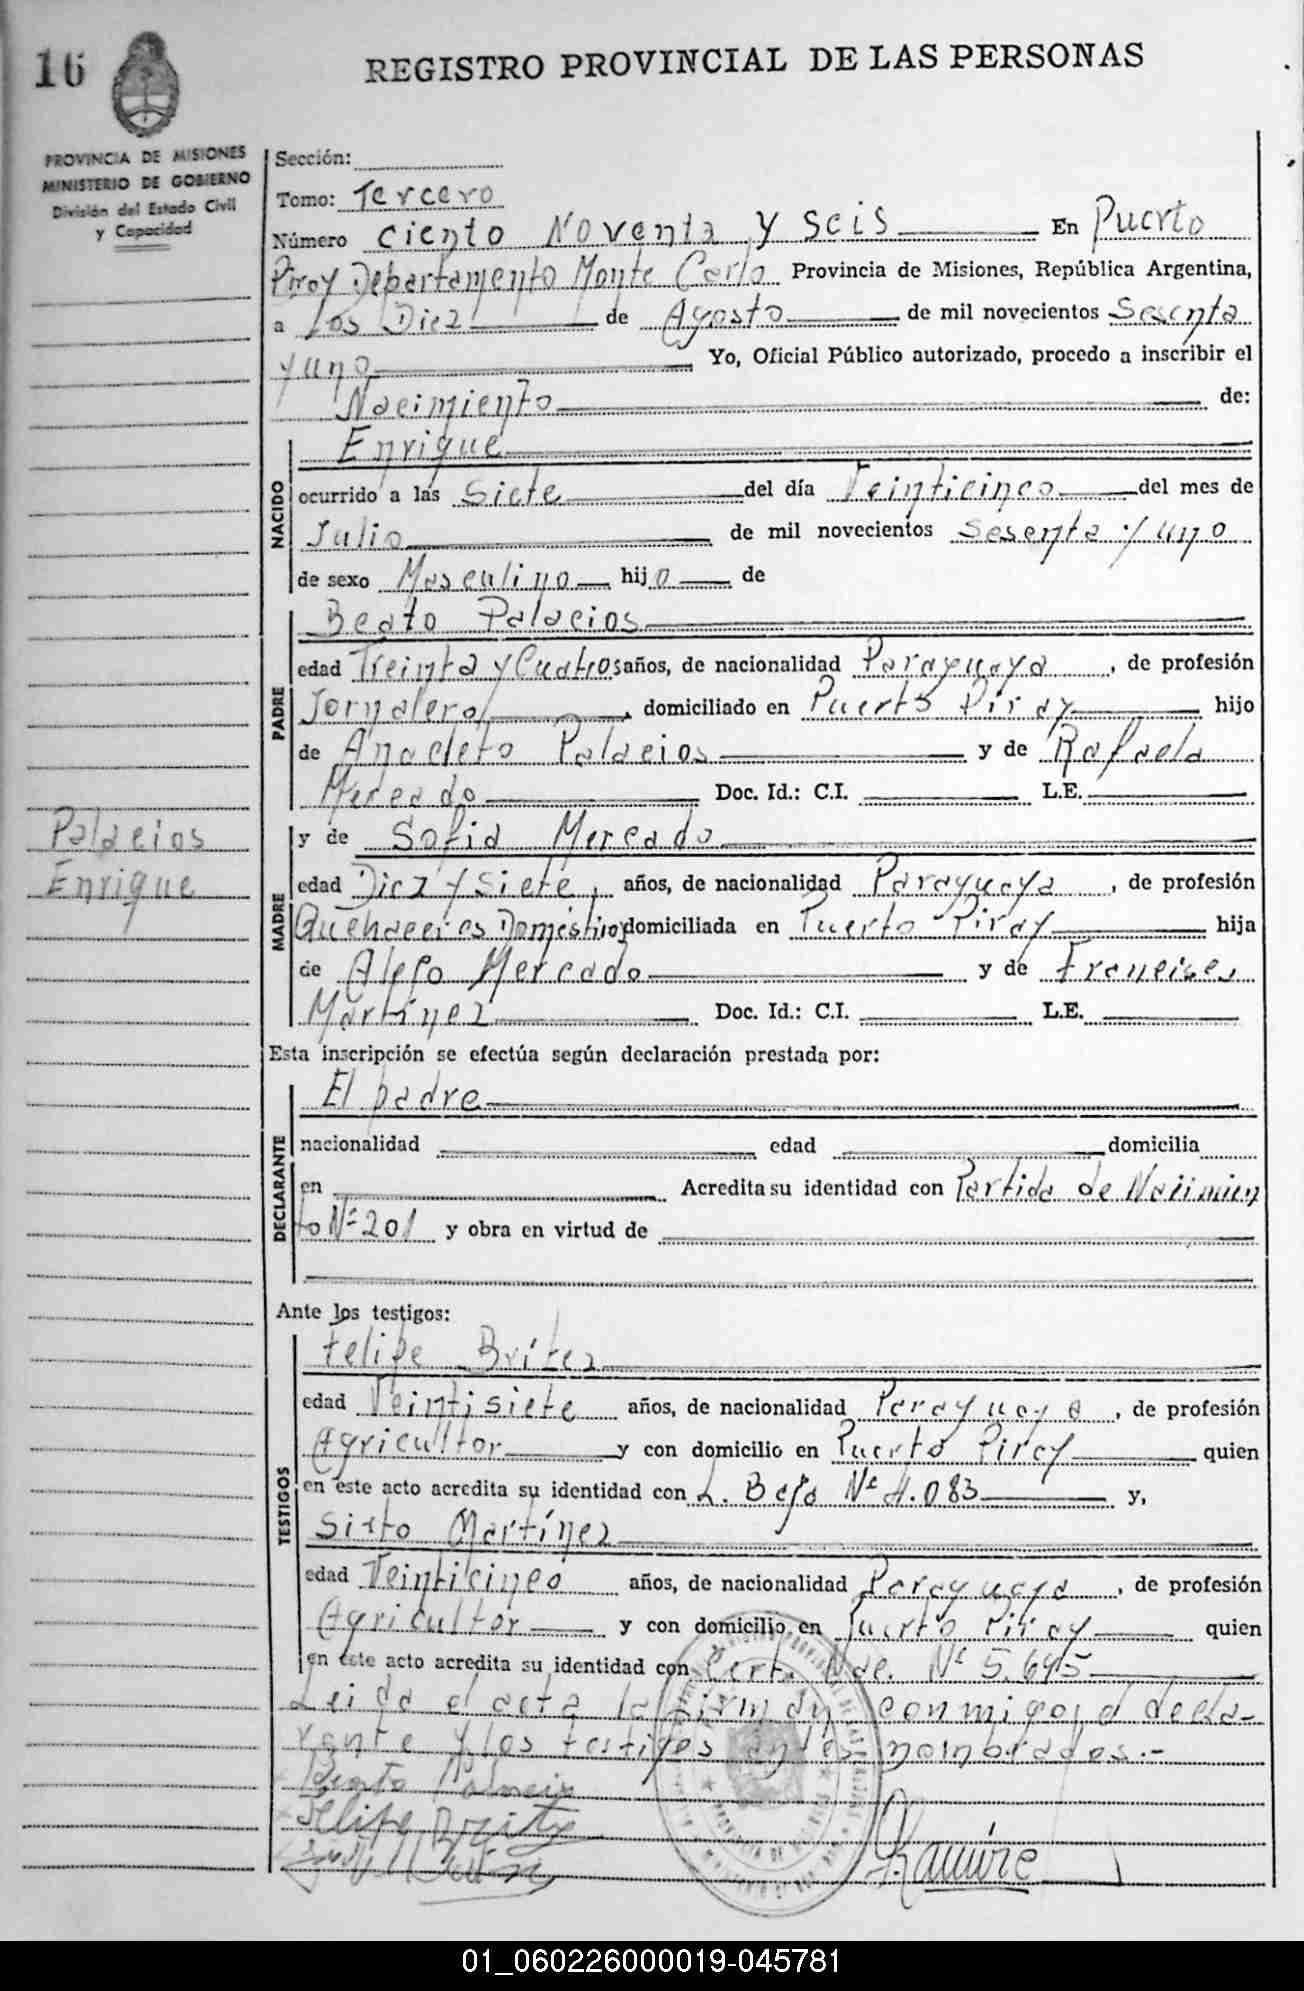 16
REGISTRO PROVINCIAL DE LAS PERSONAS
PROVINCIA DE MISIONES
MINISTERIO DE GOBIERNO
División del Estado Civil
y Capacidad
Palacios
Enrique
Sección:
Tomo: Tercero
Número ciento Noventa y seis En Puerto
Piray Departamento Monte Carlo Provincia de Misiones, República Argentina,
a Los Diez de Agosto de mil novecientos Sesenta
y uno Yo, Oficial Público autorizado, procedo a inscribir el
Nacimiento de:
NACIDO
Enrique
ocurrido a las Siete del día Veinticinco del mes de
Julio de mil novecientos Sesenta y uno
de sexo Masculino hijo de
PADRE
Beato Palacios
edad Treinta y Cuatros años, de nacionalidad Paraguaya, de profesión
Jornalero, domiciliado en Puerto Piray hijo
de Anacleto Palacios y de Rafaela
Mercado Doc. Id.: C.I. L.E.
MADRE
y de Sofia Mercado
edad Diez y Siete, años, de nacionalidad Paraguaya, de profesión
Quehaceres Domésticos domiciliada en Puerto Piray hija
de Alejo Mercado y de
Martínez Doc. Id.: C.I. L.E.
Esta inscripción se efectúa según declaración prestada por:
DECLARANTE
El padre
nacionalidad edad domicilia
en Acredita su identidad con Partida de Nacimien
to Nº 201 y obra en virtud de
Ante los testigos:
TESTIGOS
Felipe Brítez
edad Veintisiete años, de nacionalidad Paraguaya, de profesión
Agricultor y con domicilio en Puerto Piray quien
en este acto acredita su identidad con L. Baja Nº 4.083 y,
Sixto Martínez
edad Veinticinco años, de nacionalidad Paraguaya, de profesión
Agricultor y con domicilio en Puerto Piray quien
en este acto acredita su identidad con Cert. Nac. Nº 5.645
Leida el acta la firman conmigo, el decla-
rante y los testigos antes nombrados.-
01_060226000019-045781